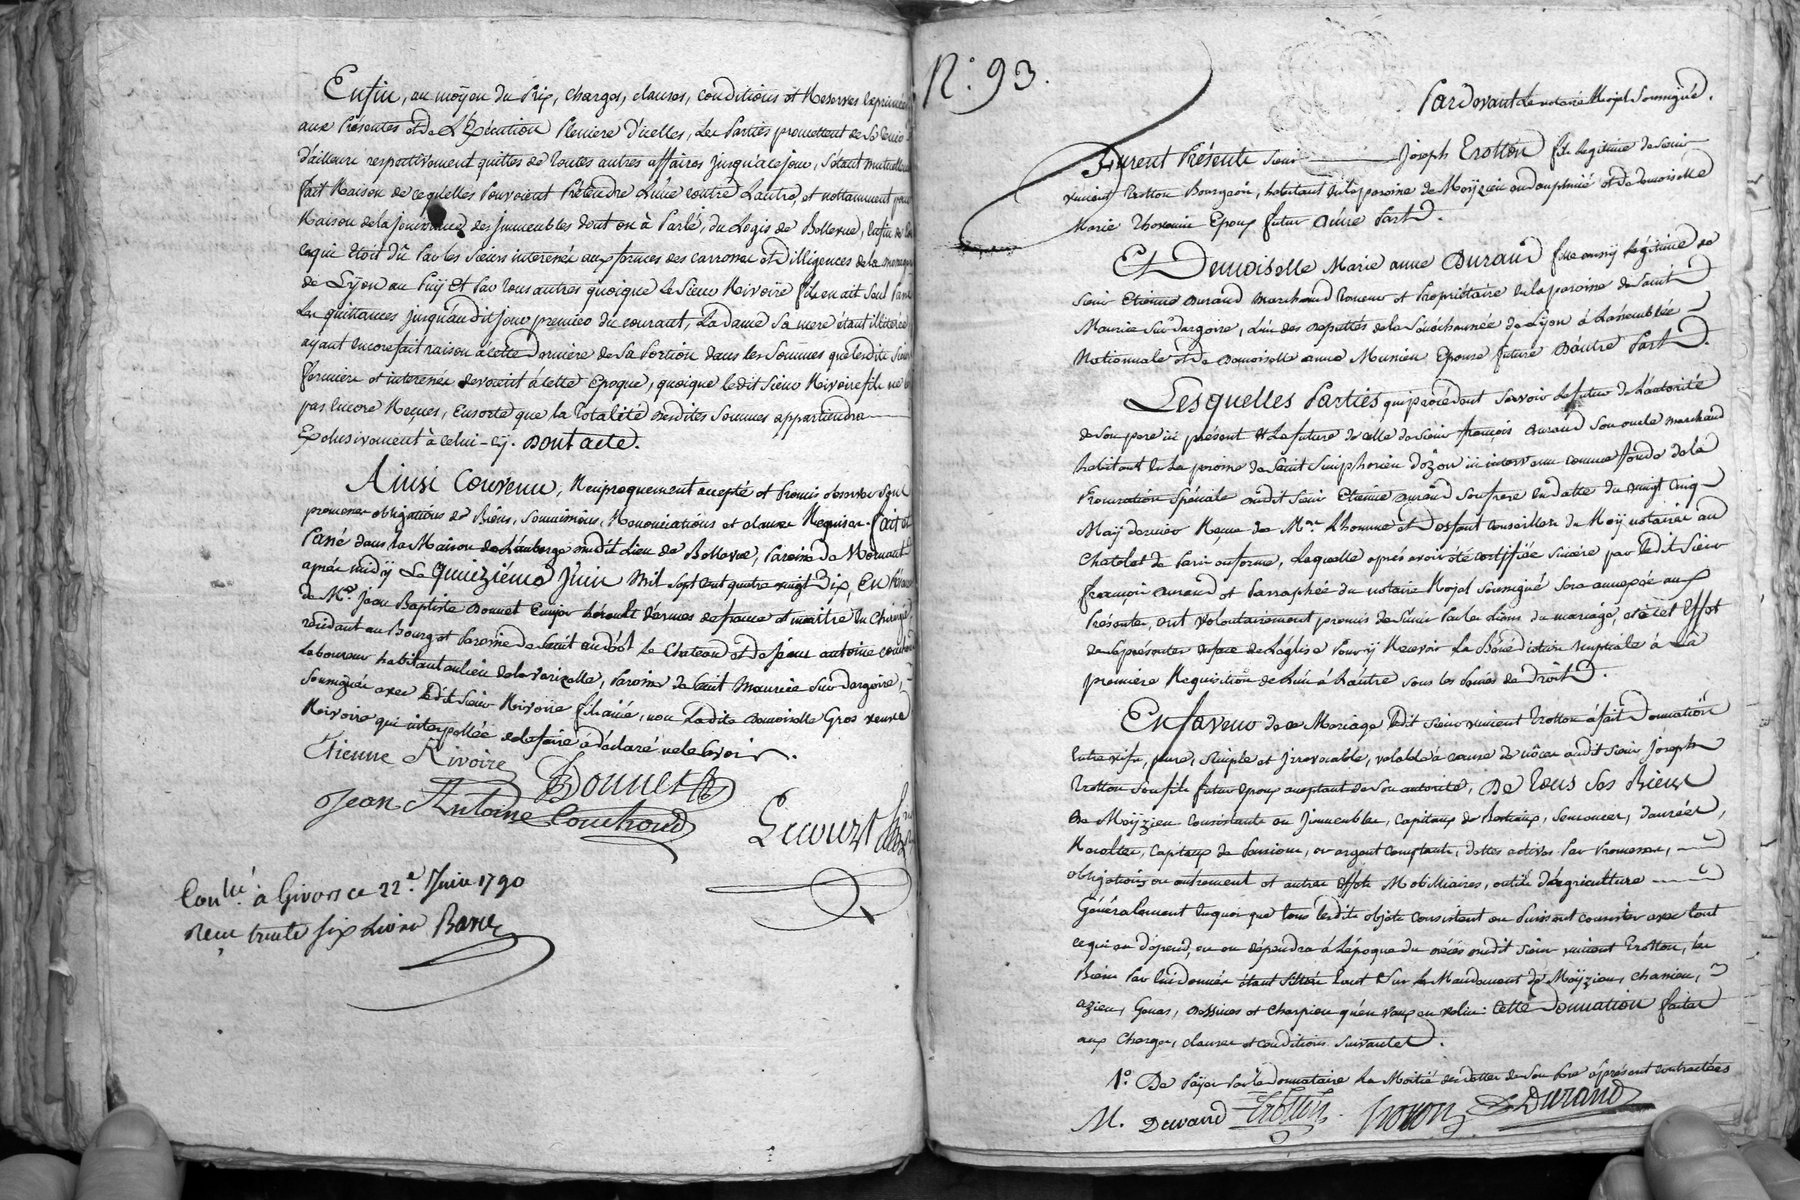 Enfin, au moÿen du Prix, charges, clauses, conditions et Reserves exprimées
aux Présentes et de L'Exécution Pleniere d'icelles, Les Parties promettent de se tenir
d'ailleurs respectivement quittes de toutes autres affaires jusqu'à ce jour, s'étant mutuellement
fait Raison de ce qu'elles Pouvoient Prétendre L'une contre L'autre, et nottamment pour
Raison de la jouissance des Immeubles dont on à Parlé, du Logis de Bellevue, enfin de
ce qui étoit dû Par les sieurs interessés aux fermes des carrosses et Dilligences de la messagerie
de Lÿon au Puÿ et Par tous autres quoique le Sieur Rivoire fils en ait seul Passé
Les quittances jusqu'au dit jour premier du courant, La dame Sa mere étant illitérée
ayant encore fait raison à cette derniere de sa Portion dans les Sommes que lesdits Sieurs
fermiers et interessés devoient à cette époque, quoique ledit Sieur Rivoire fils ne les ait
pas encore Reçues, ensorte que la totalité desdites Sommes appartiendra
Exclusivement à celui-cy. Dont acte.
Ainsi Convenu, Réciproquement accepté et Promis observer sous
promesses obligations de Biens, Soumissions, Renonciations et clauses Requises. fait et
Passé dans la Maison de L'auberge audit Lieu de Bellevue, Paroisse de Mornant
après midÿ Le quinziéme Juin Mil Sept cent quatre vingt Dix, En Présence
de Me. Jean Baptiste Donnet Ennjon hérault d'armes de france et maitre en Chirurgie,
résidant au Bourg et Paroisse de Saint andéol Le Chateau et de Jean antoine couchoud
Laboureur habitant au lieu de la varizelle, Paroisse de Saint Maurice Sur dargoire,
Soussignés avec ledit Sieur Rivoire fils ainé, non Ladite Demoiselle Gros veuve
Rivoire qui interpellée de le faire à déclaré ne le Savoir.
Etienne Rivoire Donnet
Jean Antoine Couchoud
Lecourt
Conlé. à Givors ce 22e. Juin 1790
reçu trente six Livres Barre
N.° 93.
Pardevant Le notaire Royal Soussigné.
Furent Présents sieur Joseph Trotton fils Legitime de Sieur
vincent Trotton Bourgeois, habitant en la paroisse de Moÿzieu en dauphiné et de Demoiselle
Marie Thovenin Epoux futur D'une Part.
Et Demoiselle Marie anne Durand fille aussÿ Légitime de
Sieur Etienne Durand Marchand taneur et Propriétaire en la paroisse de Saint
Maurice Sur dargoire, L'un des Députtés de la Sénéchaussée de Lÿon à L'assemblée
Nationnale et de Demoiselle anne Meunieu Epouse future D'autre Part.
Lesquelles Parties qui procédent Savoir Le futur de L'autorité
de Son pere ici présent & La future de celle de Sieur françois Durand Son oncle marchand
habitant en La paroisse de Saint Simphorien d'ozon ici intervenu comme fondé de la
Procuration Spéciale dudit Sieur Etienne Durand Son frere en datte du vingt cinq
Maÿ dernier Recue de Me. Lhomme et Desfont Conseillers du Roÿ notaires au
Chatelet de Paris en forme, Laquelle après avoir été certifiée Sincére par ledit Sieur
françois Durand et Parraphée du notaire Royal Soussigné Sera annexée aux
Présentes, ont volontairement promis de S'unir Par les Liens du mariage, et à cet Effet
de se présenter en face de L'église Pour ÿ Recevoir La Bénédiction nuptiale à La
premiere Réquisition de L'un à L'autre sous les Peines de Droit.
En faveur de ce Mariage ledit Sieur vincent Trotton à fait Donnation
Entre vifs, pure, Simple et Irrevocable, valable à cause de nôces audit Sieur Joseph
Trotton Son fils futur Epoux acceptant de Son autorité, De tous Ses Biens
De Moÿzieu Consistants en Immeubles, Capitaux de Bestiaux, Semences, danrées,
Récoltes, Capitaux de Pensions, or argent comptants, dettes actives Par Promesses,
obligations ou autrement et autres Effets Mobilliaires, outils d'agriculture
Généralement en quoi que tous lesdits objets consistent ou Puissent consister avec tout
ce qui en dépend, ou en dépendra à L'époque du décés dudit Sieur vincent Trotton, les
Biens Par Lui donnés étant Situés tant Sur le Mandement de Moÿzieu, Chassieu,
azieu, Genas, Dessines et Charpieu qu'en vaux en velin: Cette Donnation faite
aux Charges, clauses et conditions Suivantes.
1°. De Païer Par le donnataire La Moitié des dettes de Son Pere à présent contractées
M. Durand Trotton Trotton Durand